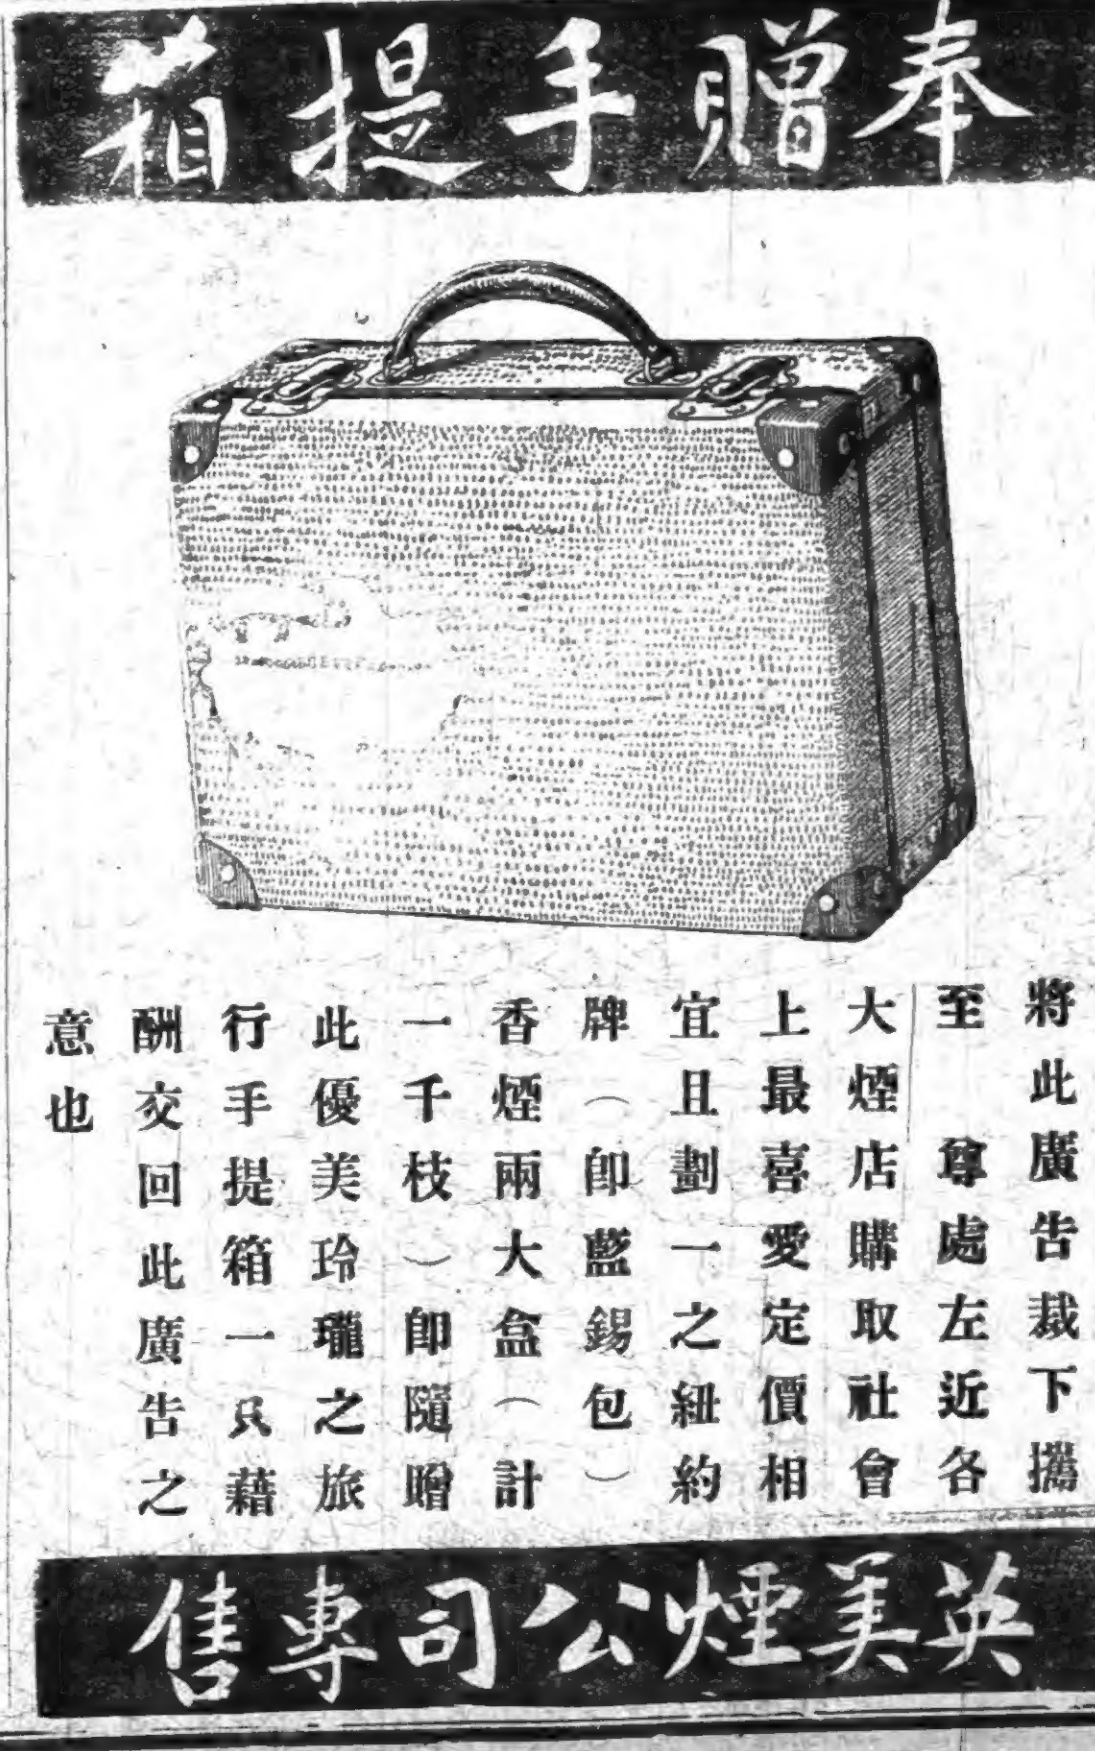 奉贈手提箱
將此廣告裁下攜
至 尊處左近各
大煙店購取社會
上最喜愛定價相
宜且劃一之紐約
牌（卽藍錫包）
香煙兩大盒（計
一千枝）卽隨贈
此優美玲瓏之旅
行手提箱一只藉
酬交回此廣告之
意也
英美煙公司專售